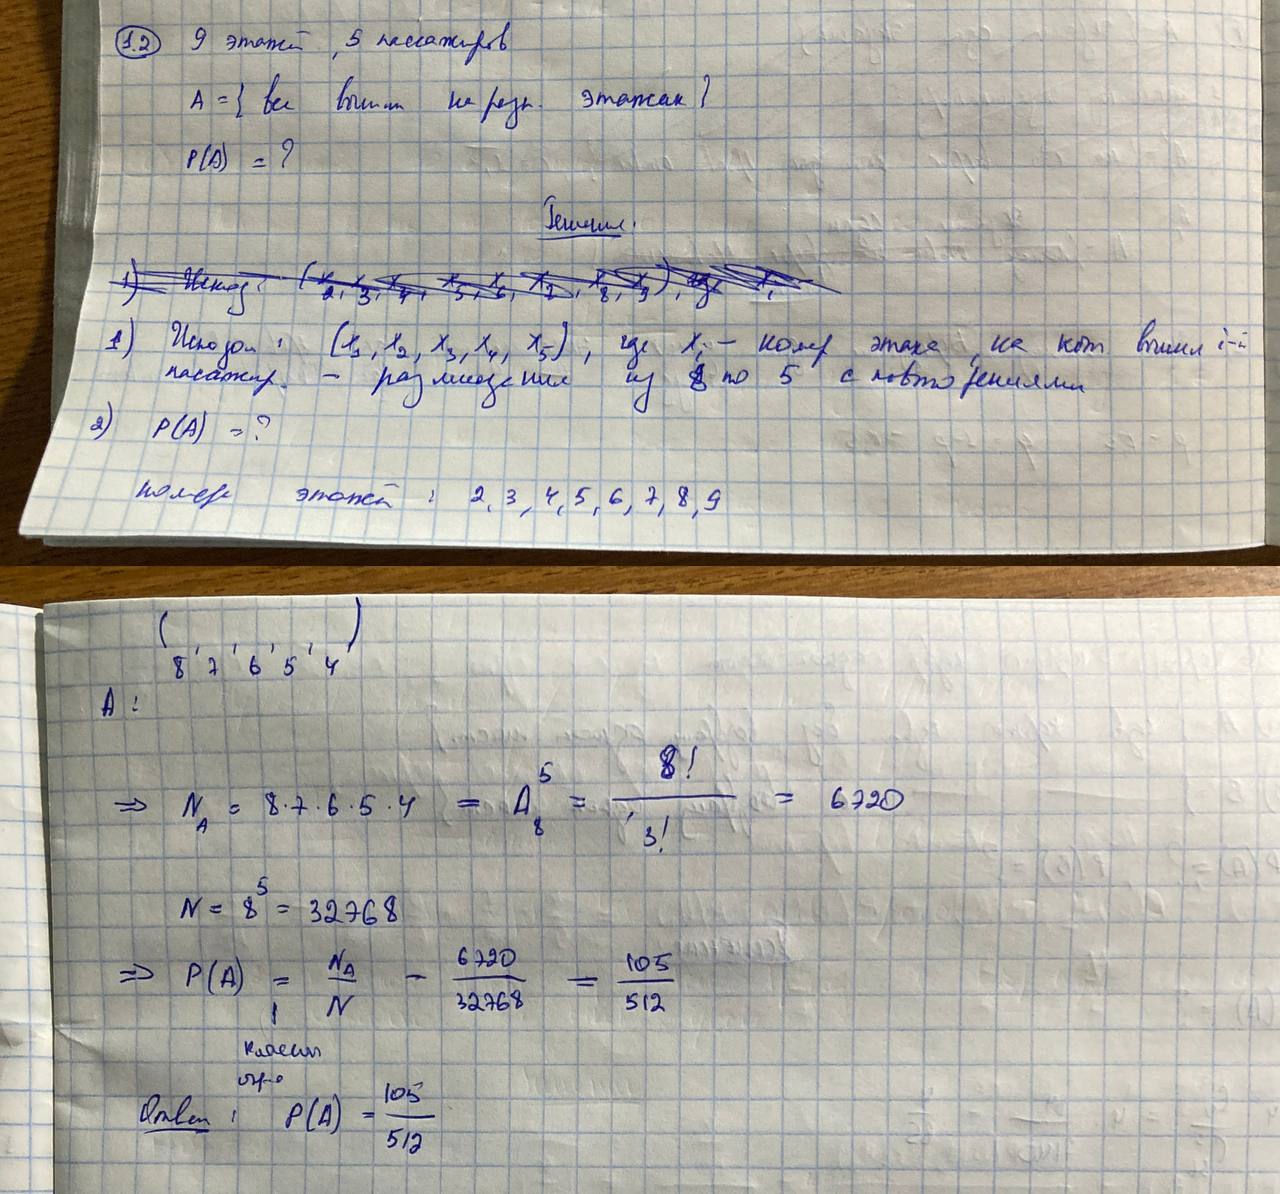 1.2 9 этажей, 5 пассажиров
A = { все вышли на разн. этажах }
P(A) = ?
Решение.
1) Исход: (x₂, x₃, x₄, x₅, x₆, x₇, x₈, x₉), где xᵢ
1) Исходы: (x₁, x₂, x₃, x₄, x₅), где xᵢ – номер этажа, на кот вышел i-й
пасажир. – размещения из 8 по 5 с повторениями
2) P(A) = ?
номера этажей: 2, 3, 4, 5, 6, 7, 8, 9
( , , , , )
8 7 6 5 4
A:
⇒ N_A = 8·7·6·5·4 = A₈⁵ = 8!/3! = 6720
N = 8⁵ = 32768
⇒ P(A) = N_A/N = 6720/32768 = 105/512
классич
опр-е
Ответ: P(A) = 105/512